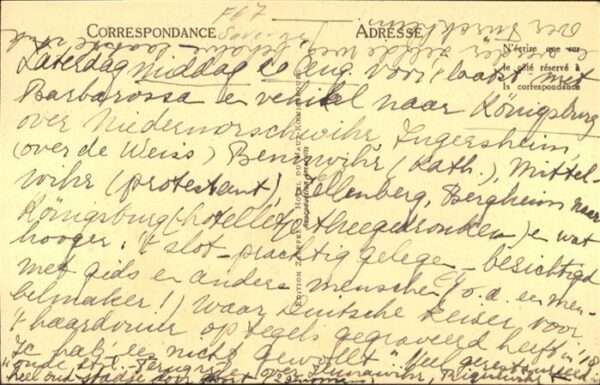 F67
CORRESPONDANCE
ADRESSE
N'écrire que sur
le côté réservé à
la correspondance
Zaterdagmiddag 20 Aug. voor 't laatst met
Barbarossa en vehikel naar Königsburg
over Niedermorschwihr, Ingersheim,
(over de Weiss) Bennwihr (Kath.), Mittel-
wihr (protestant), Zellenberg, Bergheim naar
Königsburg (hotelletje thee gedronken) en wat
hooger, 't slot - prachtig gelegen - bezichtigd
met gids en andere menschen (o.a. een men-
bilmaker!) waar Duitsche Keiser voor
't haardvuur op tegels gegraveerd heeft in '18
"Ich habe es nicht gewollt". Veel gerestaureerd
oude stijl. Terug over Hunawihr, Riquewihr,
heel oud stadje
EDITION